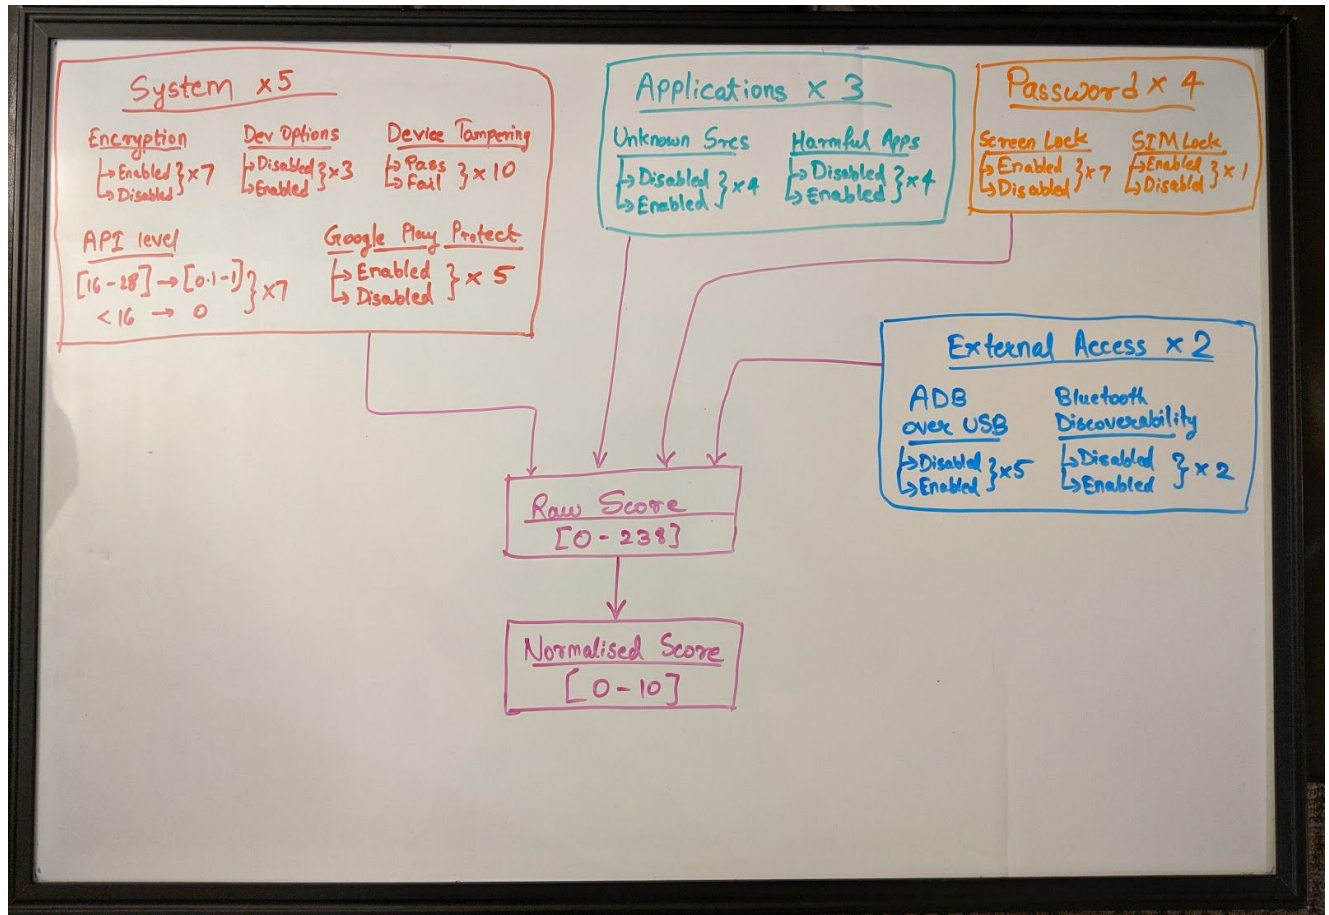 System x5
Encryption
↳Enabled
↳Disabled
} x7
Dev Options
↳Disabled
↳Enabled
} x3
Device Tampering
↳Pass
↳Fail
} x 10
API level
[16-28] → [0.1-1]
<16 → 0
} x7
Google Play Protect
↳Enabled
↳Disabled
} x 5
Applications x 3
Unknown Srcs
↳Disabled
↳Enabled
} x4
Harmful Apps
↳Disabled
↳Enabled
} x4
Password x 4
Screen Lock
↳Enabled
↳Disabled
} x7
SIM Lock
↳Enabled
↳Disabled
} x1
External Access x 2
ADB
over USB
↳Disabled
↳Enabled
} x5
Bluetooth
Discoverability
↳Disabled
↳Enabled
} x 2
Raw Score
[0-238]
Normalised Score
[0-10]